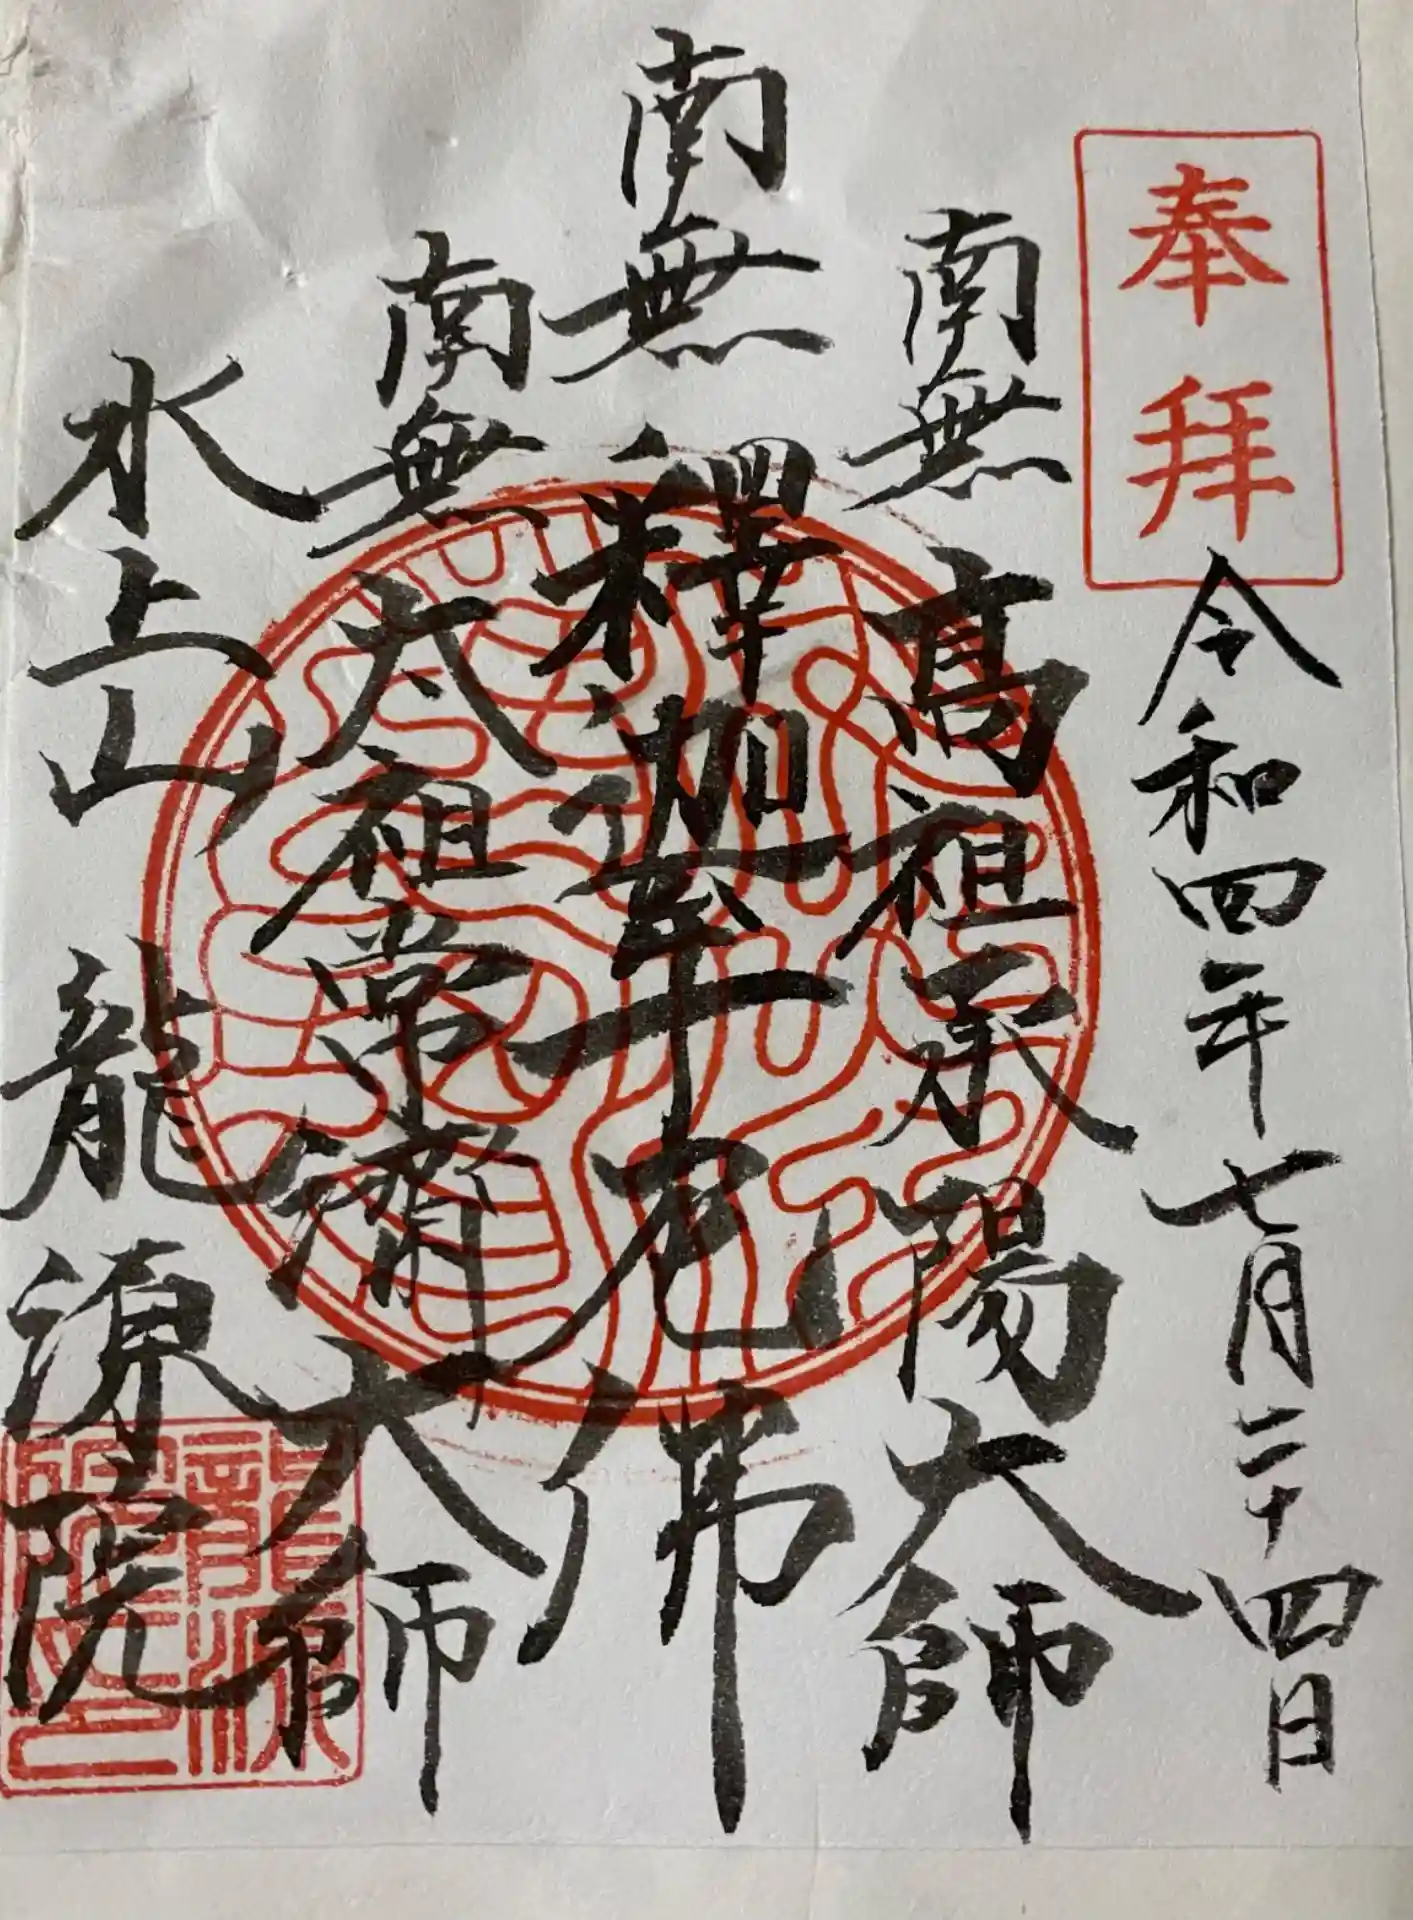 奉拜
令和四年七月二十四日
南無高祖承陽大師
南無釋迦牟尼佛
南無太祖常濟大師
水上山 龍源院
龍源院印